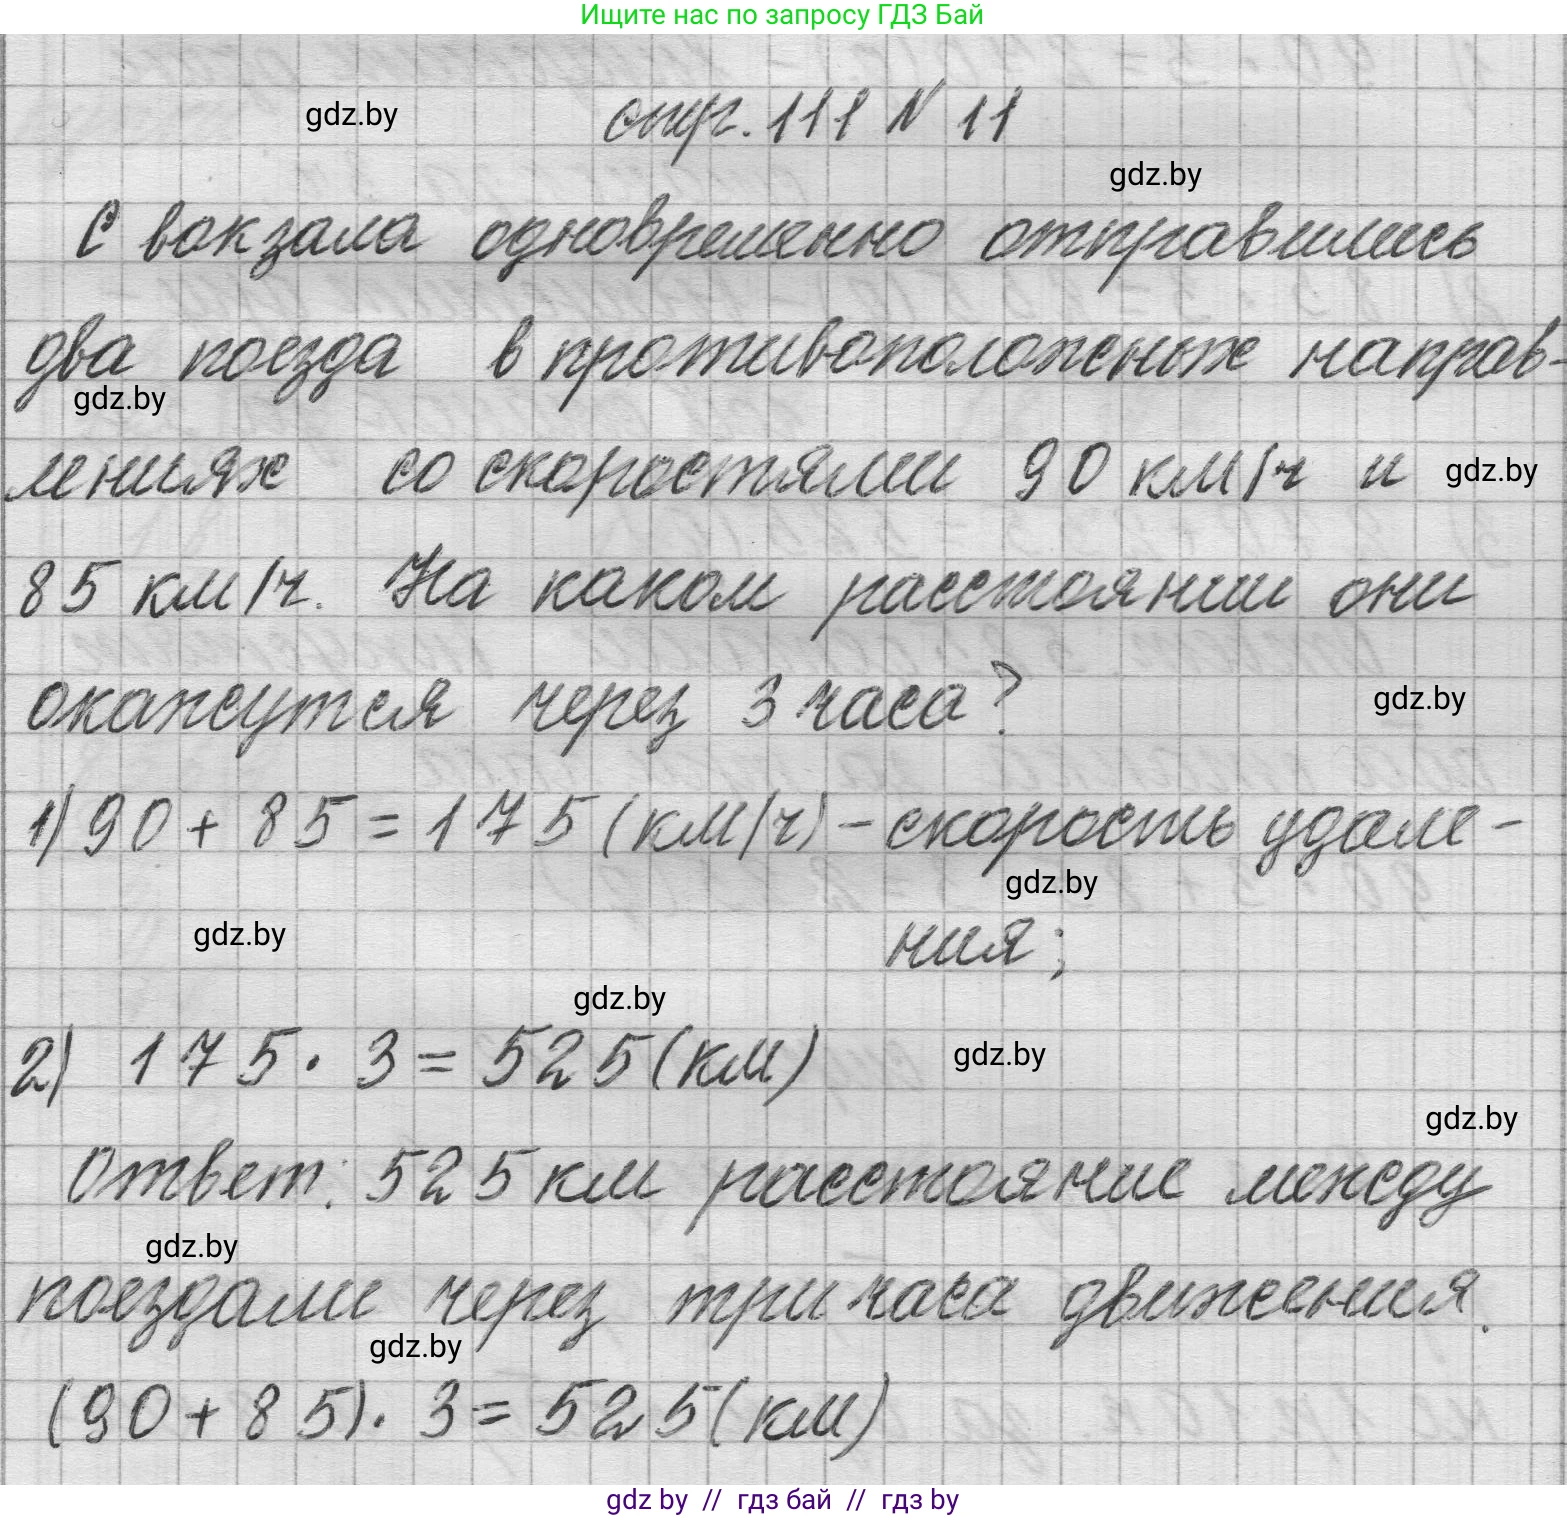 Ищите нас по запросу ГДЗ Бай
gdz.by стр. 111 № 11
gdz.by
С вокзала одновременно отправились
два поезда в противоположных направ-
gdz.by
лениях со скоростями 90 км/ч и gdz.by
85 км/ч. На каком расстоянии они
окажутся через 3 часа? gdz.by
1) 90 + 85 = 175 (км/ч) - скорость удале-
gdz.by
gdz.by ния;
gdz.by
2) 175 · 3 = 525 (км) gdz.by
gdz.by
Ответ: 525 км расстояние между
gdz.by
поездами через три часа движения.
gdz.by
(90 + 85) · 3 = 525 (км)
gdz by // гдз бай // гдз by